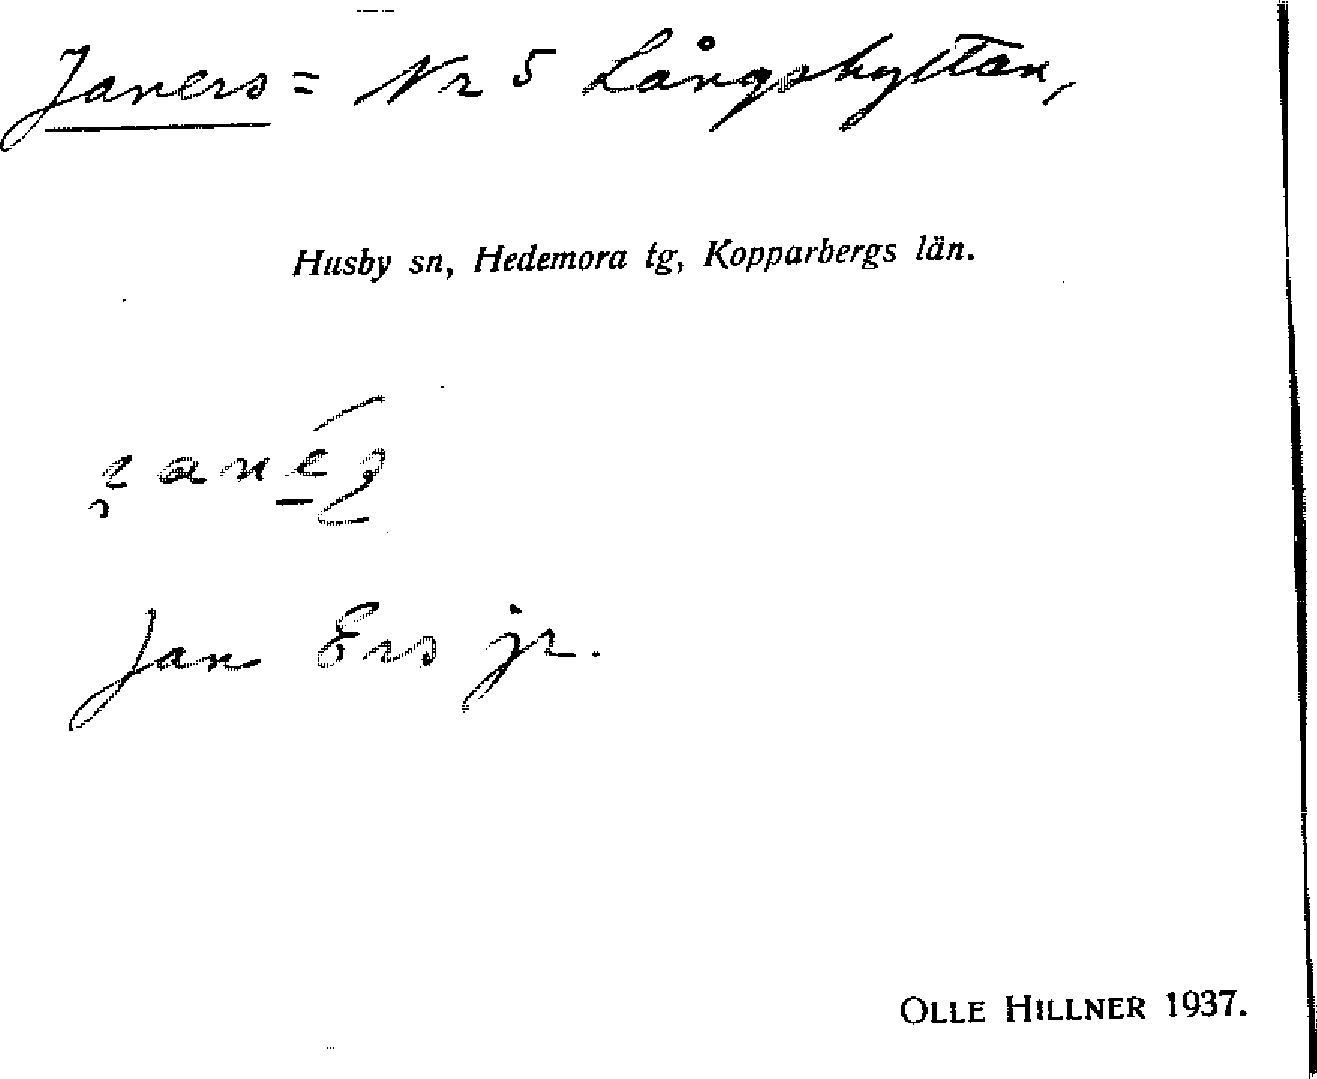 Janers = Nr 5 Långshyttan,
Husby sn, Hedemora tg, Kopparbergs län.
Jan Ers jr.
OLLE HILLNER 1937.